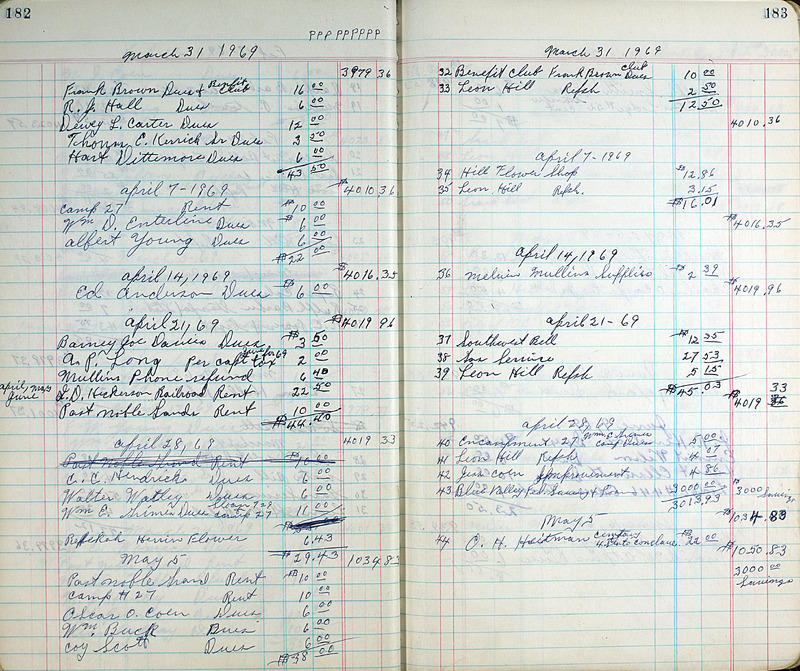 182
PPP PPPPPPP
March 31 1969
3979 36
Frank Brown Dues & Benefit Club 16 00
R. J. Hall Dues 6 00
Dewey L. Carter Dues 12 00
Thorm E. Kerrick Sr Dues 3 50
Hart Dittemore Dues 6 00
43 50
april 7-1969 $4010 36
Camp 27 Rent $10 00
Wm D. Enterline Dues 6 00
Albert Young Dues 6 00
$22 00
april 14, 1969 $4016.35
Ed. Anderson Dues $6 00
april 21, 69 $4019 96
Barney Joe Davies Dues $3 50
A. P. Long Per capt tax 2 00
Mullins Phone refund 6 40
april, May June J. D. Hickerson Railroad Rent 22 50
Past Noble Grands Rent 10 00
$44.40
april 28, 69 4019 33
Past Noble Grand Rent 10 00
C. C. Hendricks Dues 6 00
Walter Watley Dues 6 00
Wm E. Shimer Dues camp 27 11 00
Rebekah Flower 6.43
$29.43 1034 83
May 5
Past noble Grand Rent $10 00
Camp # 27 Rent 10 00
Oscar O. Coen Dues 6 00
Wm. Buck Dues 6 00
Coy Scott Dues 6 00
$38 00
183
March 31 1969
32 Benefit Club Frank Brown Club Dues 10 00
33 Leon Hill Refsh 2 50
12 50
4010.36
april 7-1969
34 Hill Flower Shop $12.86
35 Leon Hill Refsh. 3.15
$16.01
$4016.35
april 14, 1969
36 Melvin Mullins Supplies $2 39
$4019.96
april 21-69
37 Southwest Bell $12 35
38 Gas Service 27 53
39 Leon Hill Refsh 5 15
$45.03 33
$4019
april 28, 69
40 Encampment 27 Wm E. Shimer Camp Dues 5 00
41 Leon Hill Refsh 4 07
42 Coen Improvement 4 86
43 Blue Valley Fed. Saving & Loan 3000 00 $3000 Savings
3013.93
1034.83
May 5
44 O. H. Heitman $22 00
$1050.83
3000 00
Savings